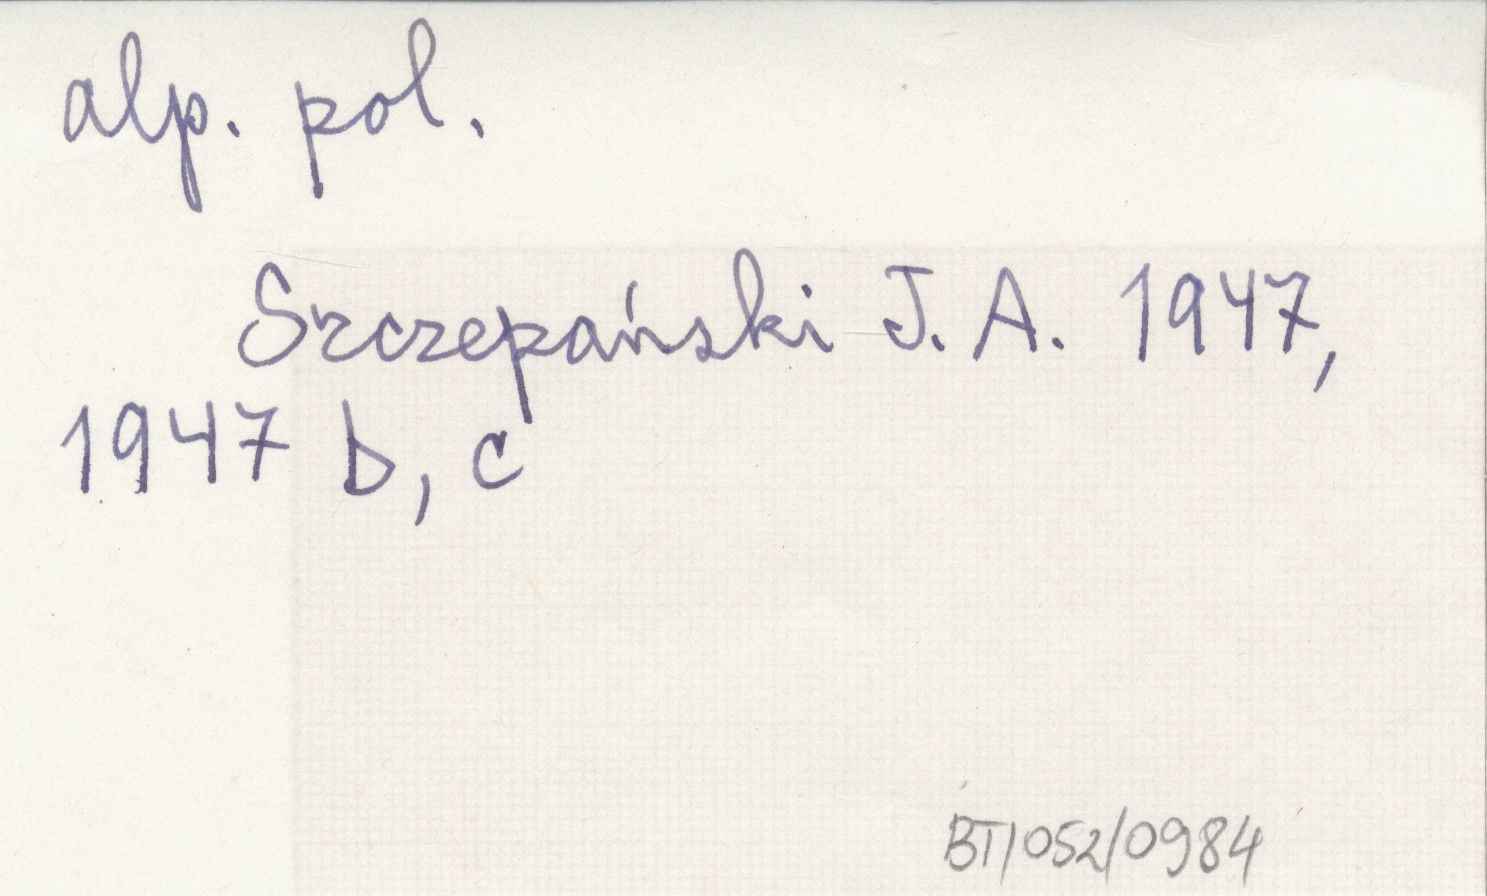 alp. pol.
Szczepański J. A. 1947,
1947 b, c
BT/052/0984